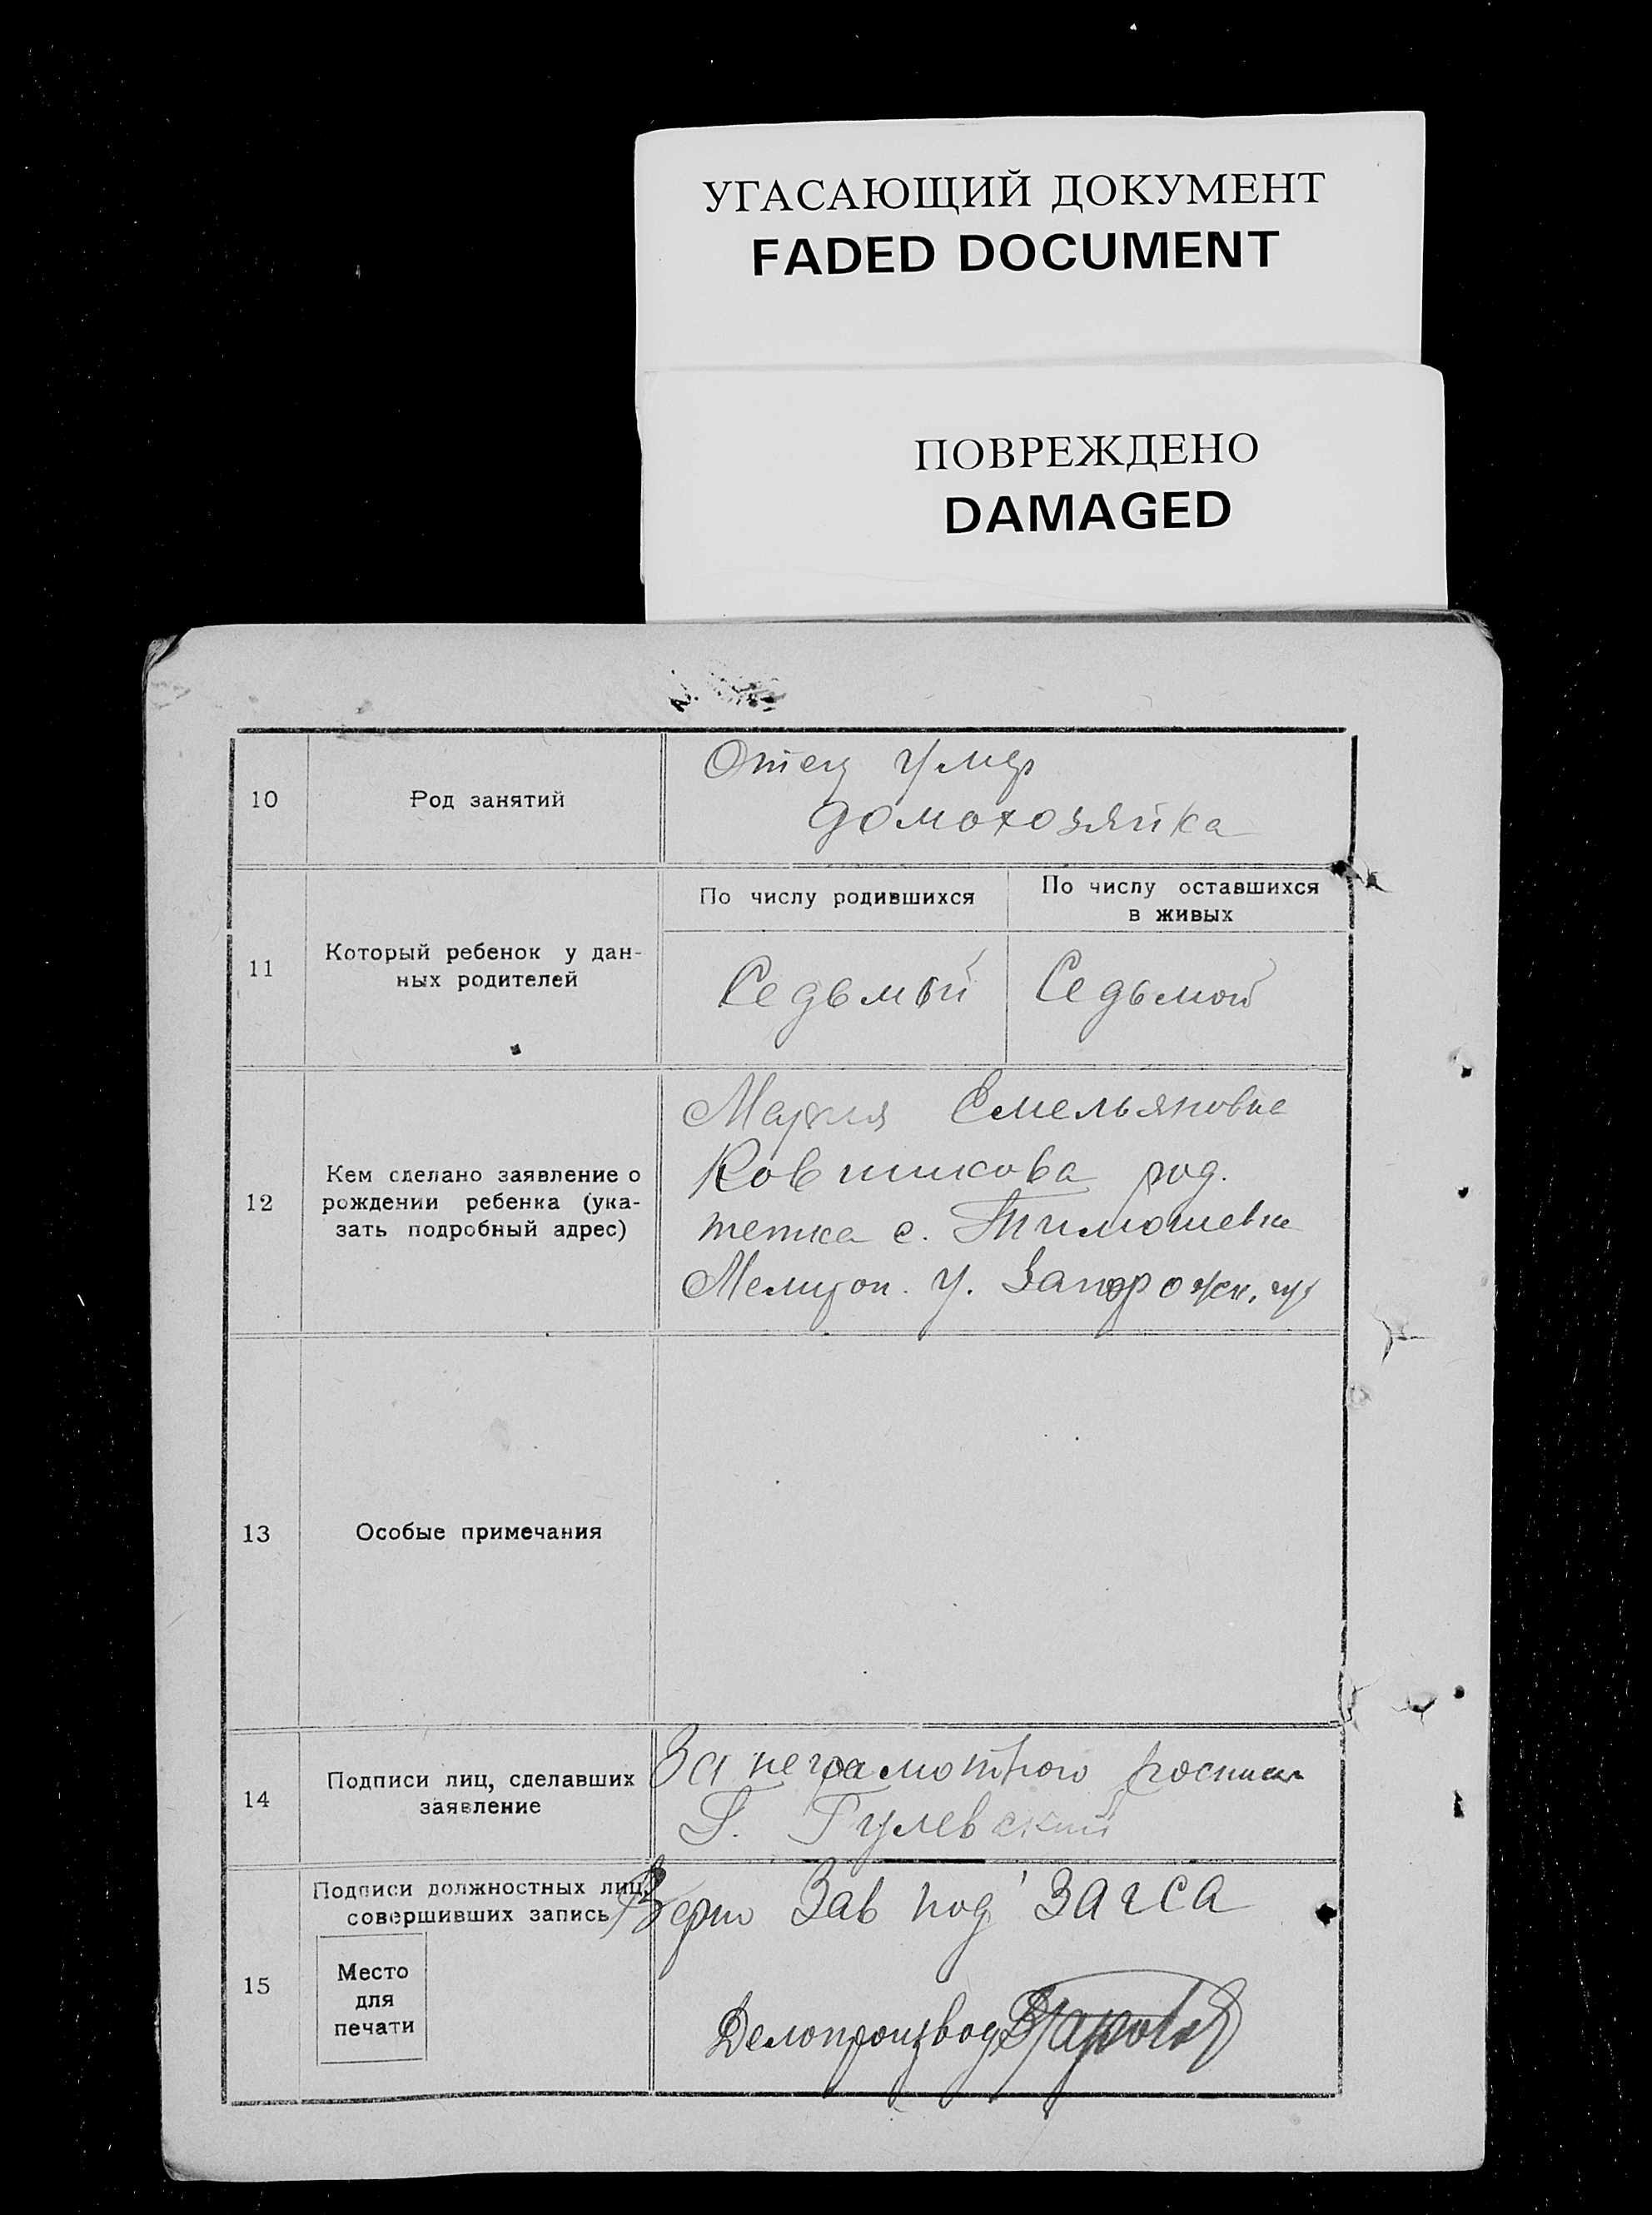 УГАСАЮЩИЙ ДОКУМЕНТ
FADED DOCUMENT
ПОВРЕЖДЕНО
DAMAGED
10
Род занятий
Отец умер
домохозяйка
11
Который ребенок у дан-
ных родителей
По числу родившихся
Седьмой
По числу оставшихся
в живых
Седьмой
12
Кем сделано заявление о
рождении ребенка (ука-
зать подробный адрес)
Мария Емельяновна
род.
тетка с. Тимошевка
Мелитоп. у. Запорожск. гу
13
Особые примечания
14
Подписи лиц, сделавших
заявление
За неграмотного
Г. Гулевский
15
Подписи должностных лиц,
совершивших запись
Место
для
печати
Зав под ЗАГСА
Делопроизвод